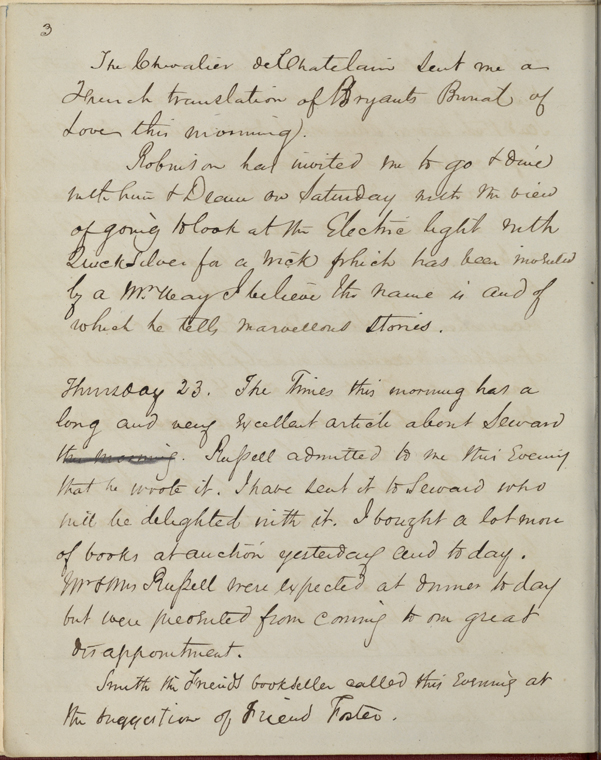 3
The Chevalier de Chatelain sent me a
French translation of Bryants Burial of
Love this morning.
Robinson has invited me to go & dine
with him & Deane on Saturday with the view
of going to look at the Electric light with
Quicksilver for a wick which has been invented
by a Mr. Way I believe the name is and of
which he tells marvellous stories.
Thursday 23. The Times this morning has a
long and very excellent article about Seward
this morning. Russell admitted to me this Evening
that he wrote it. I have sent it to Seward who
will be delighted with it. I bought a lot more
of books at auction yesterday and to day.
Mr & Mrs Russell were expected at dinner to day
but were prevented from coming to our great
disappointment.
Smith the Friends bookseller called this Evening at
the suggestion of Friend Foster.